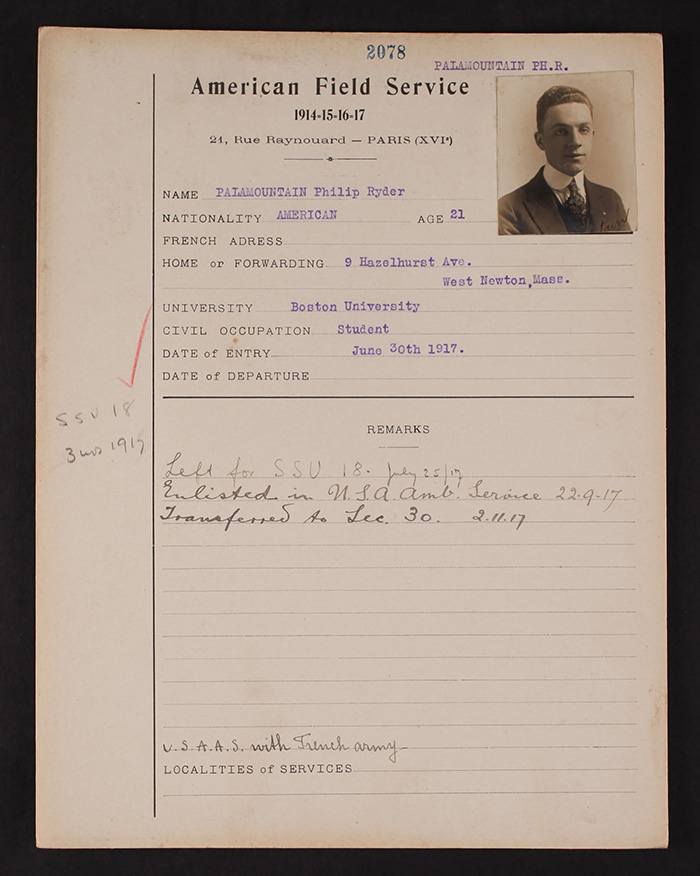 2078
PALAMOUNTAIN PH.R.
American Field Service
1914-15-16-17
21, Rue Raynouard — PARIS (XVIe)
NAME PALAMOUNTAIN Philip Ryder
NATIONALITY AMERICAN AGE 21
FRENCH ADRESS
HOME or FORWARDING 9 Hazelhurst Ave.
West Newton,Mass.
UNIVERSITY Boston University
CIVIL OCCUPATION Student
DATE of ENTRY June 30th 1917.
DATE of DEPARTURE
SSU 18
3 1917
REMARKS
Left for SSU 18. July 25/17
Enlisted in U.S.A. Amb. Service 22-9-17
Transferred to Sec. 30. 2.11.17
U.S.A.A.S. with French army
LOCALITIES of SERVICES